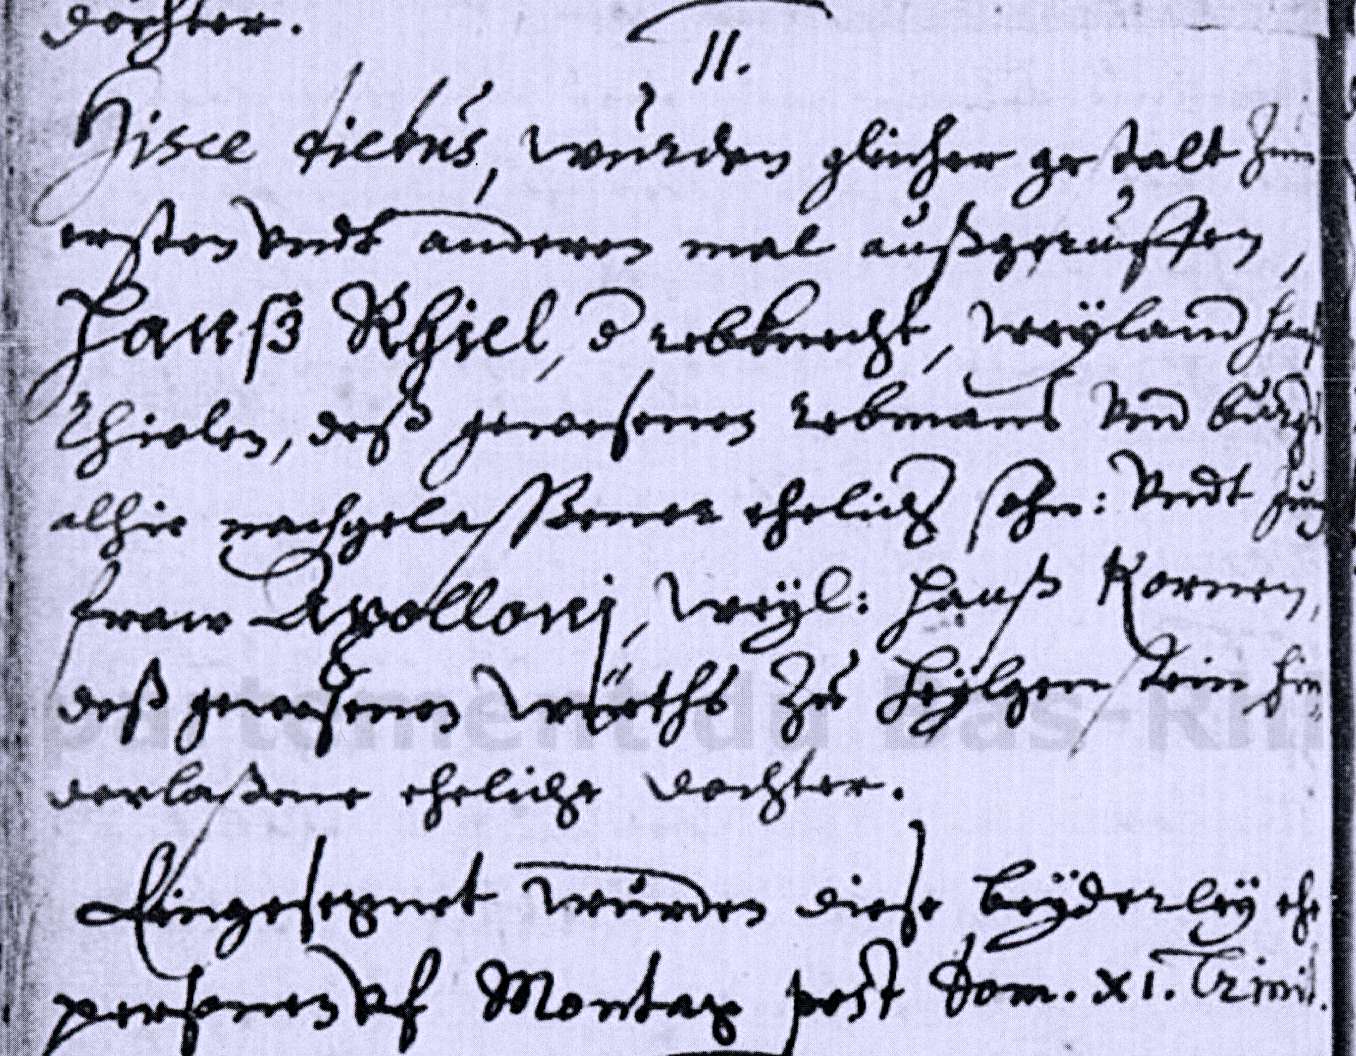 dochter.
II.
Hisce diebus, wurden glicher gestalt zum
ersten vndt anderen mal außgeruffen,
Hanß Rhiel, d rebknecht, weÿland
Rhielen, deß gewesenen rebmans vnd burg
alhie nachgelaßener ehelich sohn: vndt Jung
fraw Apolloni, weÿl: Hanß Kornen,
deß gewesenen würths zu Heÿlgenstein hin
derlaßene eheliche dochter.
Eingesegnet wurden diese beÿderleÿ ehe
personen vf Montag post Dom. XI. Trinit.